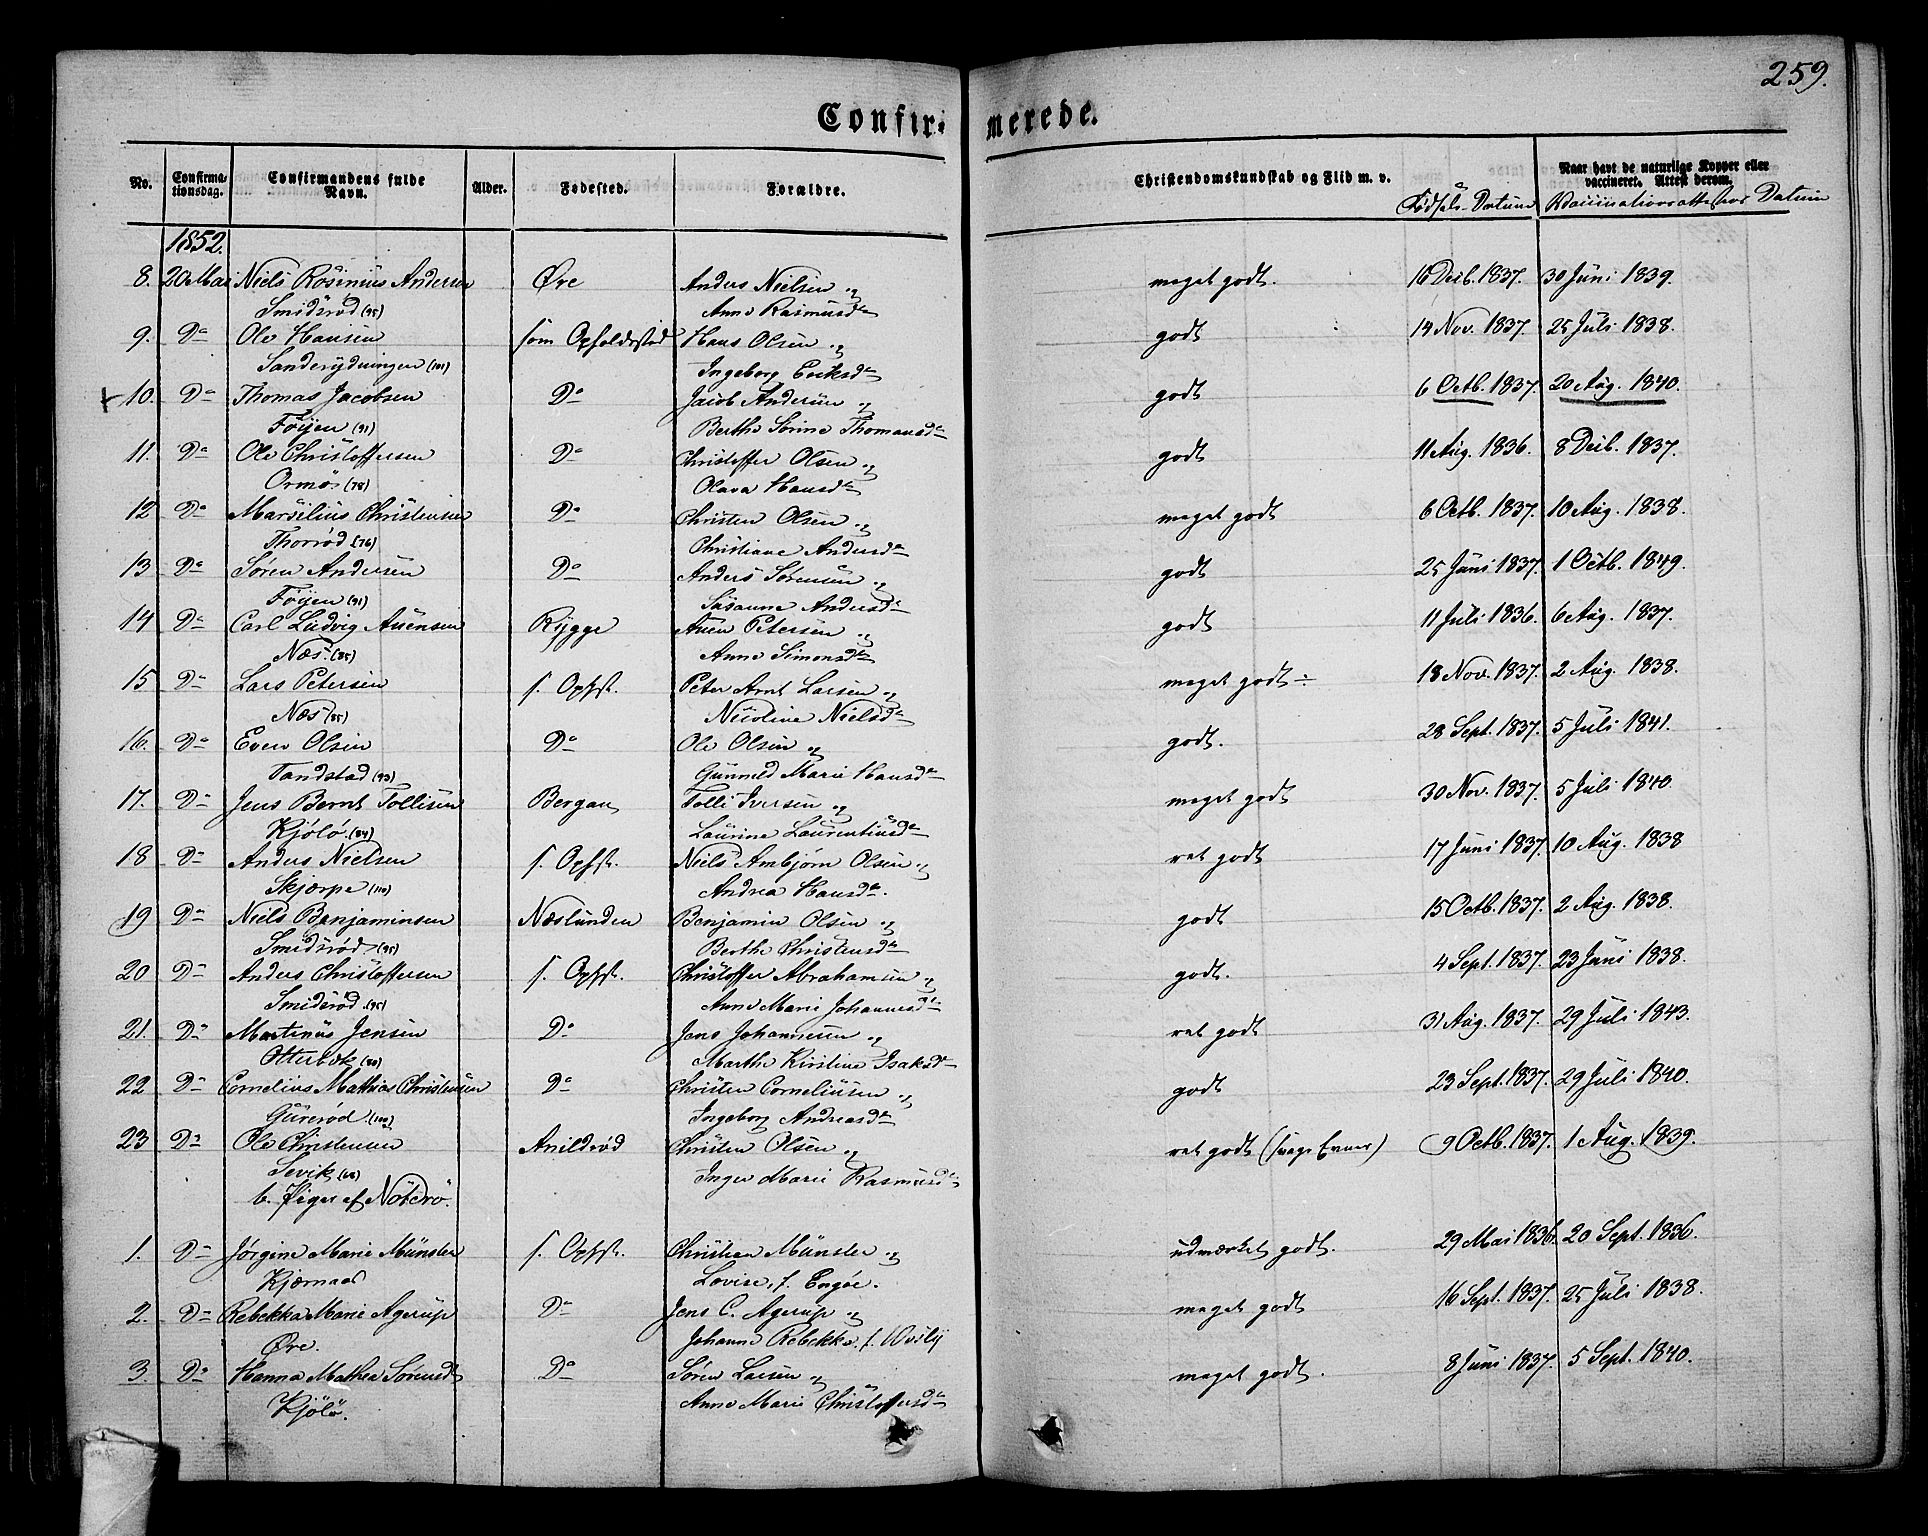 259.
Confir- merede.
No. Confirma-tionsdag. Confirmandens fulde Navn. Alder. Fødested. Forældre. Christendomskundskab og Flid m. v. Naar havt de naturlige Kopper eller vaccineret. Attest derom.
Fødsels-Datum Vaccinationsattestens Datum
1852.
8. 20 Mai Niels Rosinius Andersen Øre Anders Nielsen og meget godt. 16 Decb. 1837. 30 Juni 1839.
Smidsrød (95) Anne Rasmusdr
9. Do Ole Hansen som Opholdssted Hans Olsen og godt 14 Nov. 1837. 25 Juli 1838.
Sanderydningen (101) Ingeborg Eriksdr
10. Do Thomas Jacobsen Do Jacob Andersen og godt 6 Octb. 1837. 20 Aug. 1840.
Føyen (91) Berthe Sørine Thomasdr
11. Do Ole Christoffersen Do Christoffer Olsen og godt 11 Aug. 1836. 8 Decb. 1837.
Ormø (78) Olava Hansdr
12 Do Marsilius Christensen Do Christen Olsen og meget godt 6 Octb. 1837. 10 Aug. 1838.
Thorrød (76) Christiane Andersdr
13 Do Søren Andersen Do Anders Sørensen og godt 25 Juni 1837. 1 Octb. 1849.
Føyen (91) Susanne Andersdr
14 Do Carl Ludvig Auensen Rygge Auen Petersen og godt 11 Juli 1836. 6 Aug. 1837.
Næs. (85) Anne Simonsdr
15 Do Lars Petersen s. Ophst. Peter Arnt Larsen og meget godt ÷ 18 Nov. 1837. 2 Aug. 1838.
Næs (85) Nicoline Nielsdr
16. Do Even Olsen Do Ole Olsen og godt. 28 Sept. 1837. 5 Juli 1841.
Tandstad (93) Gunnild Marie Hansdr
17. Do Jens Bernt Tollisen Bergan Tolli Iversen og meget godt 30 Nov. 1837. 5 Juli 1840.
Kjølø. (84) Laurine Laurentiusdr
18 Do Anders Nielsen s. Ophst. Niels Ambjørn Olsen og ret godt 17 Juni 1837. 10 Aug. 1838
Skjærpe (110) Andrea Hansdr.
19 Do Niels Benjaminsen Næslunden Benjamin Olsen og godt 15 Octb. 1837. 2 Aug. 1838.
Smidsrød (95) Berthe Christensdr
20 Do Anders Christoffersen s. Ophst. Christoffer Abrahamsen og godt. 4 Sept. 1837. 23 Juni 1838.
Smidsrød. (95) Anne Marie Johannesdr
21. Do Martinus Jensen Do Jens Johannesen og ret godt 31 Aug. 1837. 29 Juli 1843.
Otterbæk (80) Marthe Kirstine Isaksdr
22 Do Cornelius Mathias Christensen Do Christen Corneliusen og godt 23 Sept. 1837. 29 Juli 1840.
Gurerød (100) Ingeborg Andreasdr
23 Do Ole Christensen Anildrød Christen Olsen og ret godt (svage Evner) 9 Octb. 1837. 1 Aug. 1839.
Sevik (68) Inger Marie Rasmusdr
b. Piger af Nøterø.
1. Do Jørgine Marie Münster s. Ophst. Christian Münster og udmærket godt. 29 Mai 1836. 20 Sept. 1836.
Kjærnaas Lovise, f. Engøe.
2. Do Rebekka Marie Agerup Do Jens C. Agerup og meget godt 16 Sept. 1837. 25 Juli 1838.
Øre. Johanne Rebekka. f.
3. Do Hanna Mathea Sørensdr Do Søren Larsen og meget godt. 8 Juni 1837. 5 Sept. 1840.
Kjølø. Anne Marie Christoffersdr